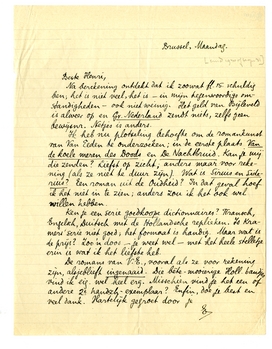 Brussel. Maandag.
Beste Henri,
Na berekening ontdekt dat ik zoowat fl. 15. schuldig
ben; het is niet veel, het is — in mijn tegenwoordige om-
standigheden — ook niet weinig. Het geld van Bijleveld
is alweer op en Gr. Nederland zendt niets, zelfs geen
bewijsnr. Netjes is anders.
Ik heb nu plotseling behoefte om de romankunst
van Van Eeden te onderzoeken; in de eerste plaats Van
de koele meren des Doods en De Nachtbruid. Kan je mij
die zenden? Liefst op zicht, anders maar voor reke-
ning (als ze niet te duur zijn). Wat is Sirius en Side-
rius? Een roman uit de Oudheid? In dat geval hoef
ik het niet in te zien; anders zou ik het ook wel
willen hebben.
Ken je een serie goedkoope dictionnaires? Fransch,
Engelsch, Duitsch met de Hollandsche replieken? De Kra-
mers' serie niet goed; het formaat is handig. Maar wat is
de prijs? Zoo'n doos — je weet wel — met het heele stelletje
erin is wat ik het liefste heb.
De romans van V.E., vooral als ze voor rekening
zijn, alsjeblieft ingenaaid. Die bête-mooierige Holl. band
vind ik eig. wel heel erg. Misschien vind je het een of
andere 2e handsch-exemplaar? Enfin, doe je best en
veel dank. Hartelijk gegroet door je
E